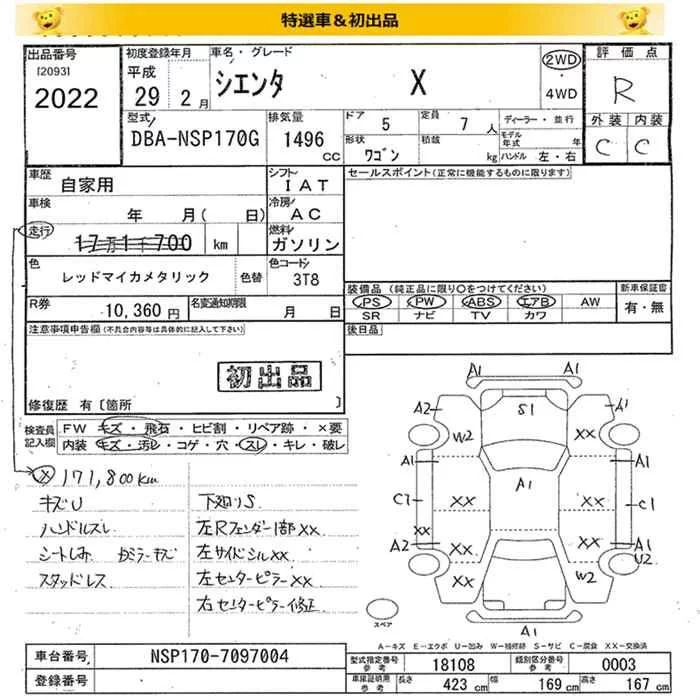 特選車&初出品
出品番号 初度登録年月 車名・グレード 2WD 評価点
(2093) 平成 シエンタ X ・ R
2022 29 2月 4WD
型式 排気量 ドア 定員 ディーラー・並行 外装 内装
DBA-NSP170G 1496 CC 5 7人 モデル年式 年 C C
形状 積載
ワゴン kg ハンドル 左・右
車歴 シフト セールスポイント(正常に機能するものに限ります)
自家用 IAT
車検 冷房
年 月( 日) AC
走行 燃料
17万1千700 km ガソリン
色 色替 色コード
レッドマイカメタリック 3T8
装備品(純正品に限り○をつけてください) 新車保証書
R券 10,360円 名変通知期限 月 日 PS PW ABS エアB AW 有・無
SR ナビ TV カワ
注意事項申告欄(不具合内容等は具体的に記入して下さい) 後日品
初出品
修復歴 有〔箇所 〕
検査員記入欄 FW キズ・飛石・ヒビ割・リペア跡・×要
内装 キズ・汚レ・コゲ・穴・スレ・キレ・破レ
× 171,800km
キズU 下廻りS
ハンドルスレ 左Rフェンダー1部XX
シートしみ 左サイドシルXX
スタッドレス 左センターピラーXX
右センターピラー修正
A1
A2 S1 A1
W2 XX
A1 A1 A1
C1 XX XX C1
XX
A2 XX XX A1
U2
XX W2
A1
スペア
A-キズ E-エクボ U-凹み W-補修跡 S-サビ C-腐食 XX-交換済
車台番号 NSP170-7097004 型式指定番号 参考 18108 類別区分番号 参考 0003
登録番号 車庫証明用 参考 長さ 423cm 幅 169cm 高さ 167cm